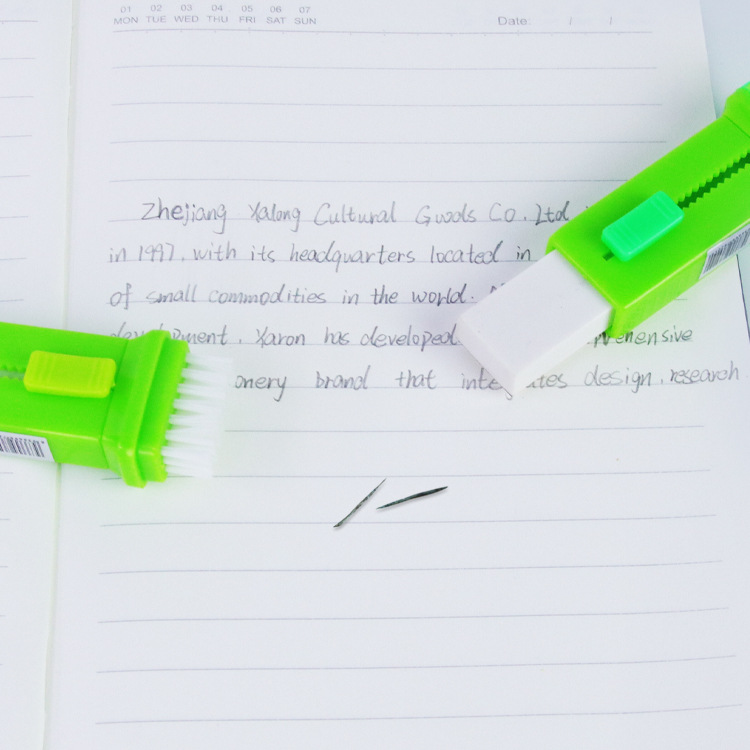 01 02 03 04 05 06 07
MON TUE WED THU FRI SAT SUN Date: / /
Zhejiang Xalong Cultural Guods Co. Ltd
in 1997. with its headquarters located in
of small commodities in the world.
development. Xaron has developed
onery brand that integrates design. research